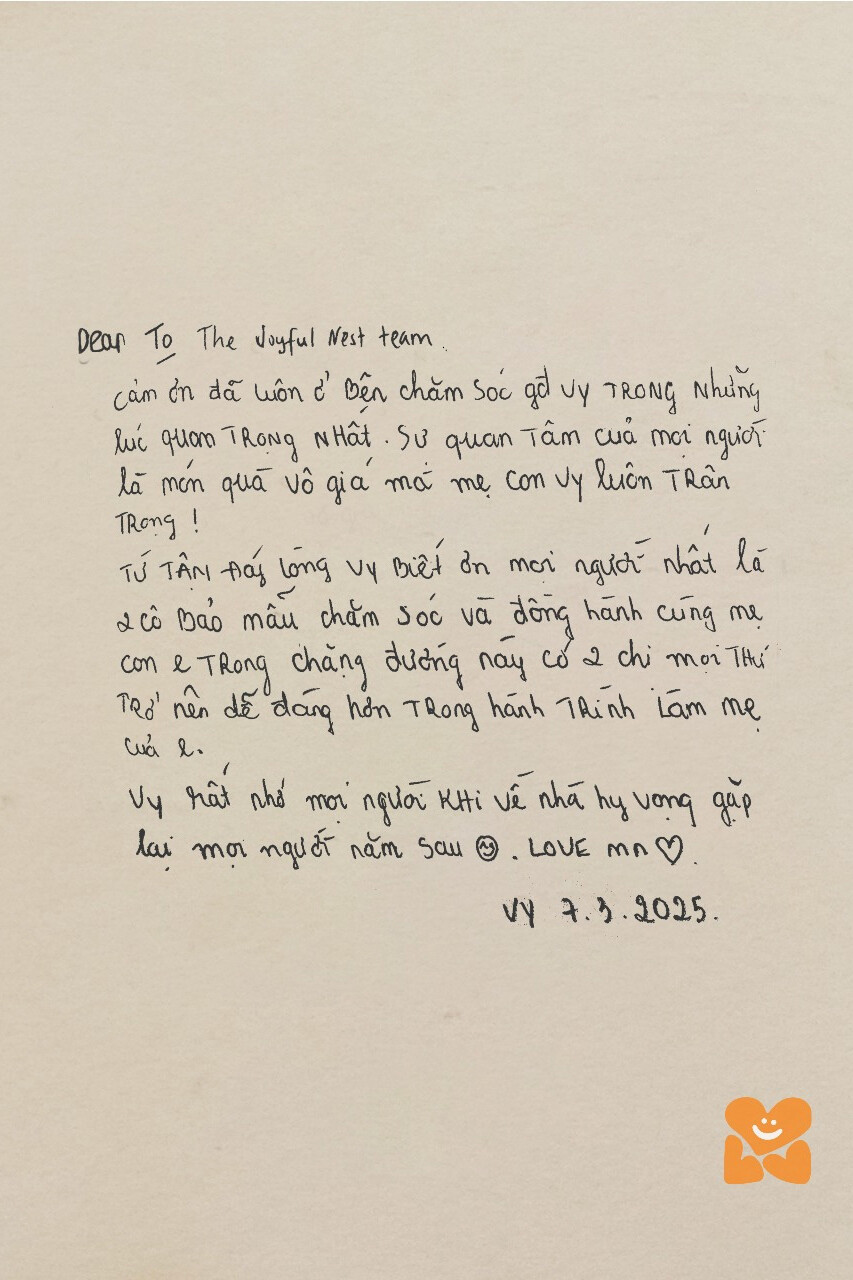 Dear To The Joyful Nest team.
cảm ơn đã luôn ở Bên chăm sóc gđ Vy TRONG NHững
lúc quan TRỌNG NHất. Sự quan Tâm cuả mọi người
là món quà vô giá mà mẹ con Vy luôn TRân
TRọng!
Từ TẬN đáy lòng Vy Biết ơn mọi người nhất là
2 cô Bảo mẫu chăm sóc và đồng hành cùng mẹ
con e TRong chặng đường này có 2 chị mọi THứ
TRở nên dễ dàng hơn TRong hành TRình Làm mẹ
cuả e.
Vy rất nhớ mọi người KHi về nhà hy vọng gặp
lại mọi người năm sau ☺. LOVE mn ♡.
VY 7.3.2025.